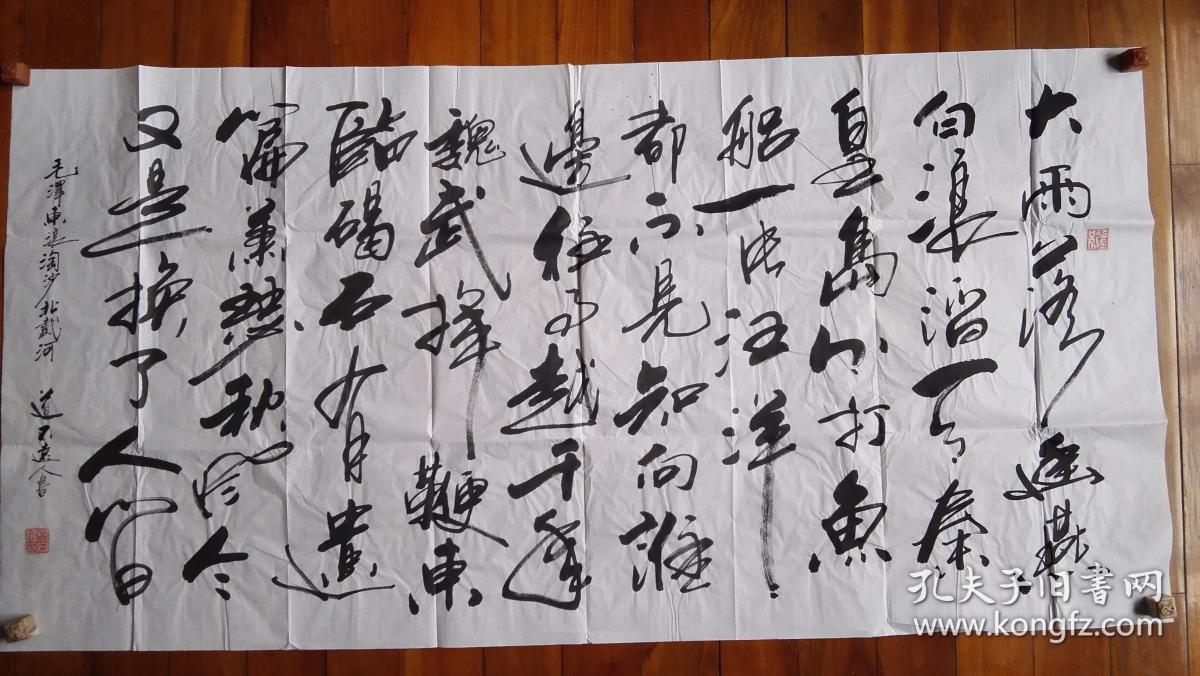 大雨落幽燕
白浪滔天秦
皇島外打魚
船一片汪洋
都不見知向誰
邊往事越千年
魏武揮鞭東
臨碣石有遺
篇蕭瑟秋風今
又是換了人間
毛澤東浪淘沙北戴河 道不遠人書
孔夫子旧书网
www.kongfz.com